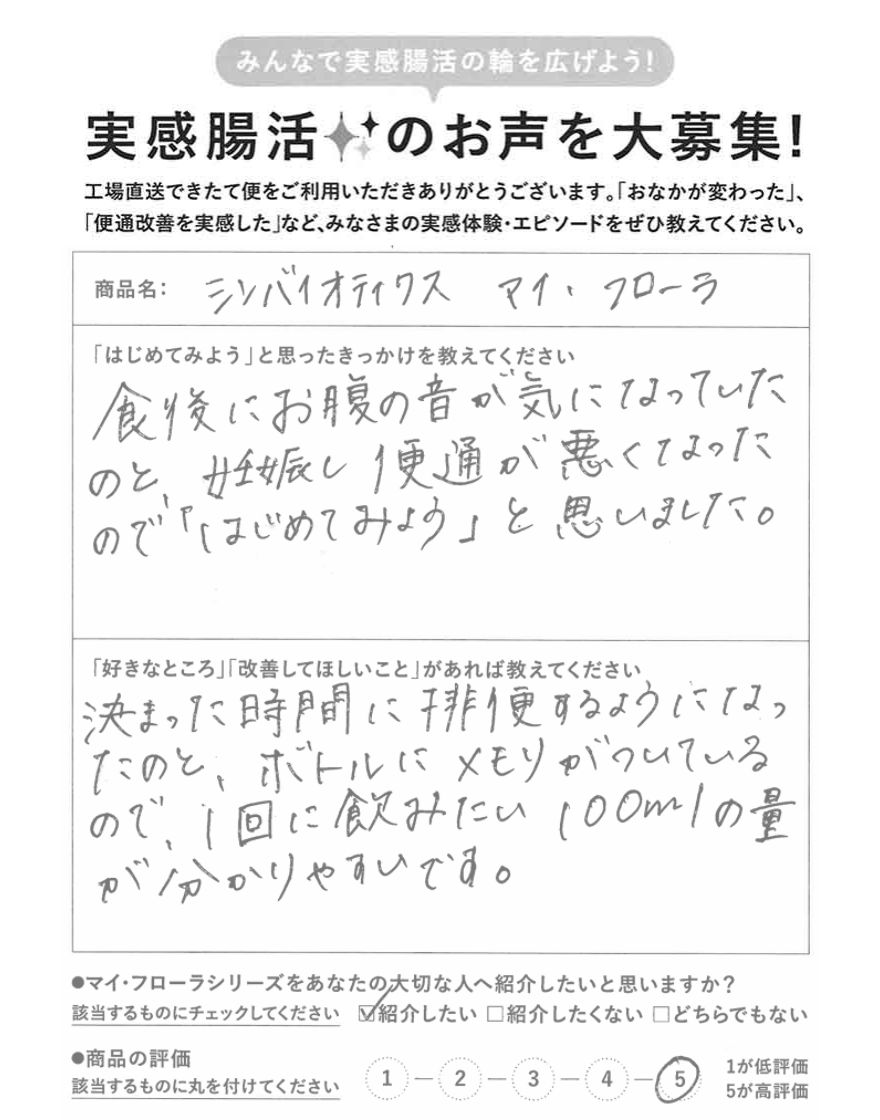 みんなで実感腸活の輪を広げよう!
実感腸活のお声を大募集!
工場直送できたて便をご利用いただきありがとうございます。「おなかが変わった」、
「便通改善を実感した」など、みなさまの実感体験・エピソードをぜひ教えてください。
商品名: シンバイオティクス マイ・フローラ
「はじめてみよう」と思ったきっかけを教えてください
食後にお腹の音が気になっていた
のと、妊娠し便通が悪くなった
ので「はじめてみよう」と思いました。
「好きなところ」「改善してほしいこと」があれば教えてください
決まった時間に排便するようになっ
たのと、ボトルにメモリがついている
ので、1回に飲みたい100mlの量
が分かりやすいです。
●マイ・フローラシリーズをあなたの大切な人へ紹介したいと思いますか?
該当するものにチェックしてください ☑紹介したい □紹介したくない □どちらでもない
●商品の評価
該当するものに丸を付けてください 1 — 2 — 3 — 4 — 5
1が低評価
5が高評価